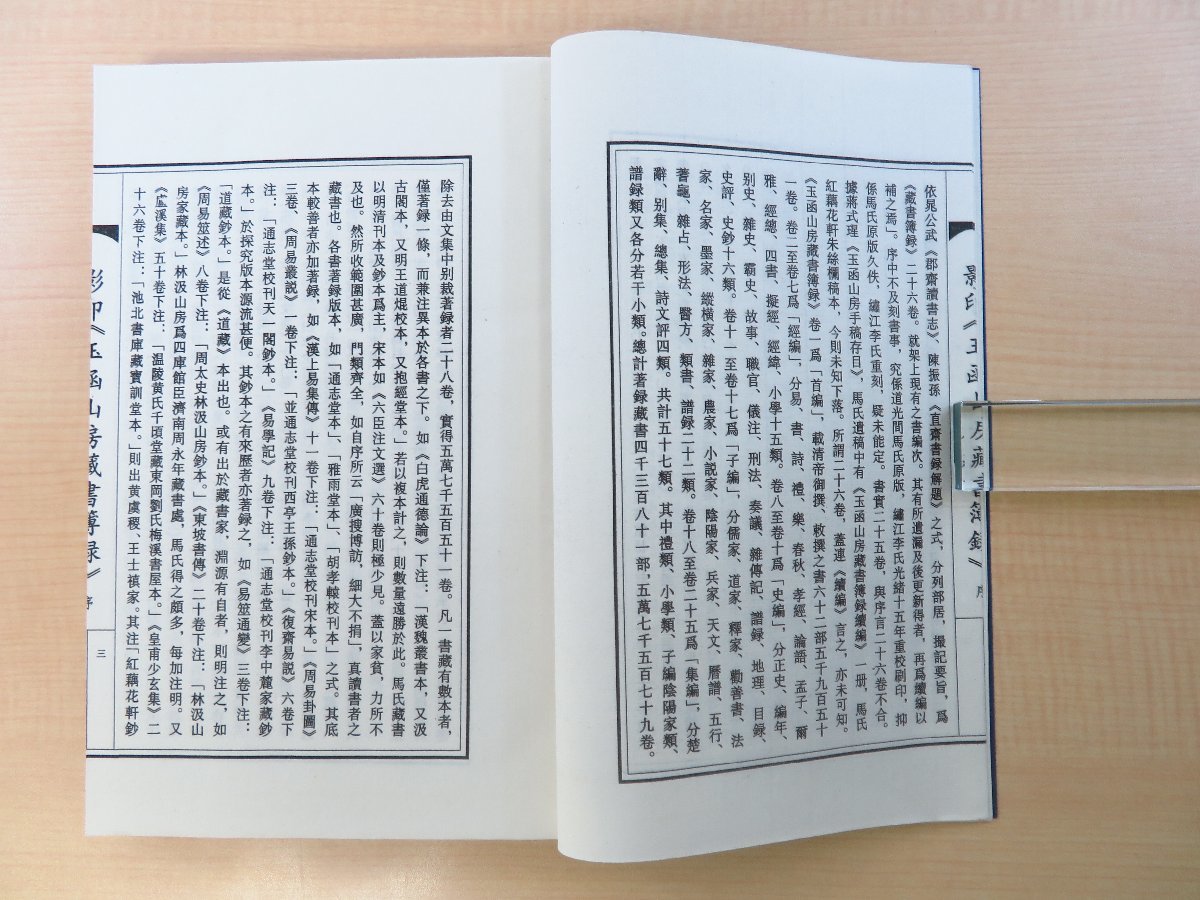 影印《玉函山房藏書簿録》 序
依晁公武《郡齋讀書志》、陳振孫《直齋書録解題》之式，分列部居，撮記要旨，爲
《藏書簿録》二十六卷。就架上現有之書編次。其有所遺漏及後更新得者，再爲續編以
補之焉」。序中不及刻書事，究係道光間馬氏原版，繡江李氏光緒十五年重校刷印，抑
係馬氏原版久佚，繡江李氏重刻，疑未能定。書實二十五卷，與序言二十六卷不合。
據蔣式瑆《玉函山房手稿存目》，馬氏遺稿中有《玉函山房藏書簿録續編》一册，馬氏
紅藕花軒朱絲欄稿本，今則未知下落。所謂二十六卷，蓋連《續編》言之，亦未可知。
《玉函山房藏書簿録》卷一爲「首編」，載清帝御撰、敕撰之書六十二部五千九百五十
一卷。卷二至卷七爲「經編」，分易、書、詩、禮、樂、春秋、孝經、論語、孟子、爾
雅、經總、四書、擬經、經緯、小學十五類。卷八至卷十爲「史編」，分正史、編年、
别史、雜史、霸史、故事、職官、儀注、刑法、奏議、雜傳記、譜録、地理、目録、
史評、史鈔十六類。卷十一至卷十七爲「子編」，分儒家、道家、釋家、勸善書、法
家、名家、墨家、縱横家、雜家、農家、小説家、陰陽家、兵家、天文、曆譜、五行、
蓍龜、雜占、形法、醫方、類書、譜録二十二類。卷十八至卷二十五爲「集編」，分楚
辭、别集、總集、詩文評四類。共計五十七類。其中禮類、小學類、子編陰陽家類、
譜録類又各分若干小類。總計著録藏書四千三百八十一部，五萬七千五百七十九卷。
除去由文集中别裁著録者二十八卷，實得五萬七千五百五十一卷。凡一書藏有數本者，
僅著録一條，而兼注異本於各書之下。如《白虎通德論》下注：「漢魏叢書本，又汲
古閣本，又明王道焜校本，又抱經堂本。」若以複本計之，則數量遠勝於此。馬氏藏書
以明清刊本及鈔本爲主，宋本如《六臣注文選》六十卷則極少見。蓋以家貧，力所不
及也。然所收範圍甚廣，門類齊全，如自序所云「廣搜博訪，細大不捐」，真讀書者之
藏書也。各書著録版本，如「通志堂本」、「雅雨堂本」、「胡孝轅校刊本」之式。其底
本較善者亦加著録，如《漢上易集傳》十一卷下注：「通志堂校刊宋本。」《周易卦圖》
三卷、《周易叢説》一卷下注：「並通志堂校刊西亭王孫鈔本。」《復齋易説》六卷下
注：「通志堂校刊天一閣鈔本。」《易學記》九卷下注：「通志堂校刊李中麓家藏鈔
本。」於探究版本源流甚便。其鈔本之有來歷者亦著録之，如《易筮通變》三卷下注：
「道藏鈔本。」是從《道藏》本出也。或有出於藏書家，淵源有自者，則明注之，如
《周易筮述》八卷下注：「周太史林汲山房鈔本。」《東坡書傳》二十卷下注：「林汲山
房家藏本。」林汲山房爲四庫館臣濟南周永年藏書處，馬氏得之頗多，每加注明。又
《盧溪集》五十卷下注：「温陵黄氏千頃堂藏東岡劉氏梅溪書屋本。」《皇甫少玄集》二
十六卷下注：「池北書庫藏寶訓堂本。」則出黄虞稷、王士禛家。其注「紅藕花軒鈔
影印《玉函山房藏書簿録》 序
三